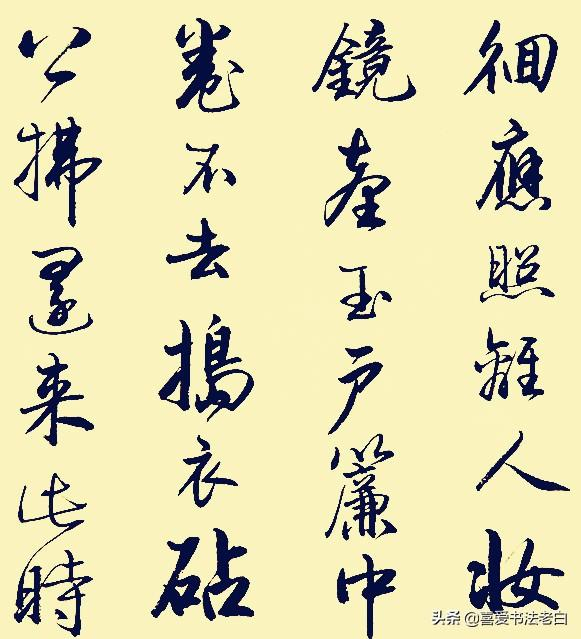 徊應照離人妝
鏡臺玉戶簾中
卷不去搗衣砧
上拂還來此時
头条 @喜爱书法老白